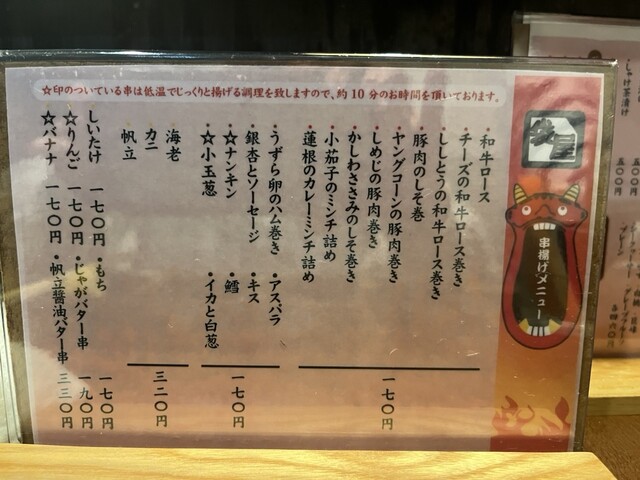 ☆印のついている串は低温でじっくりと揚げる調理を致しますので、約10分のお時間を頂いております。
串揚げメニュー
・和牛ロース
・チーズの和牛ロース巻き
・ししとうの和牛ロース巻き
・豚肉のしそ巻
・ヤングコーンの豚肉巻き
・しめじの豚肉巻き
・かしわささみのしそ巻き
・小茄子のミンチ詰め
・蓮根のカレーミンチ詰め
一七〇円
・うずら卵のハム巻き
・アスパラ
・銀杏とソーセージ
・キス
☆ナンキン
・鱈
☆小玉葱
・イカと白葱
一七〇円
海老
カニ
帆立
三二〇円
・しいたけ 一七〇円
・もち 一七〇円
☆りんご 一七〇円
・じゃがバター串 一九〇円
☆バナナ 一七〇円
・帆立醤油バター串 三三〇円
しゃけ茶漬け